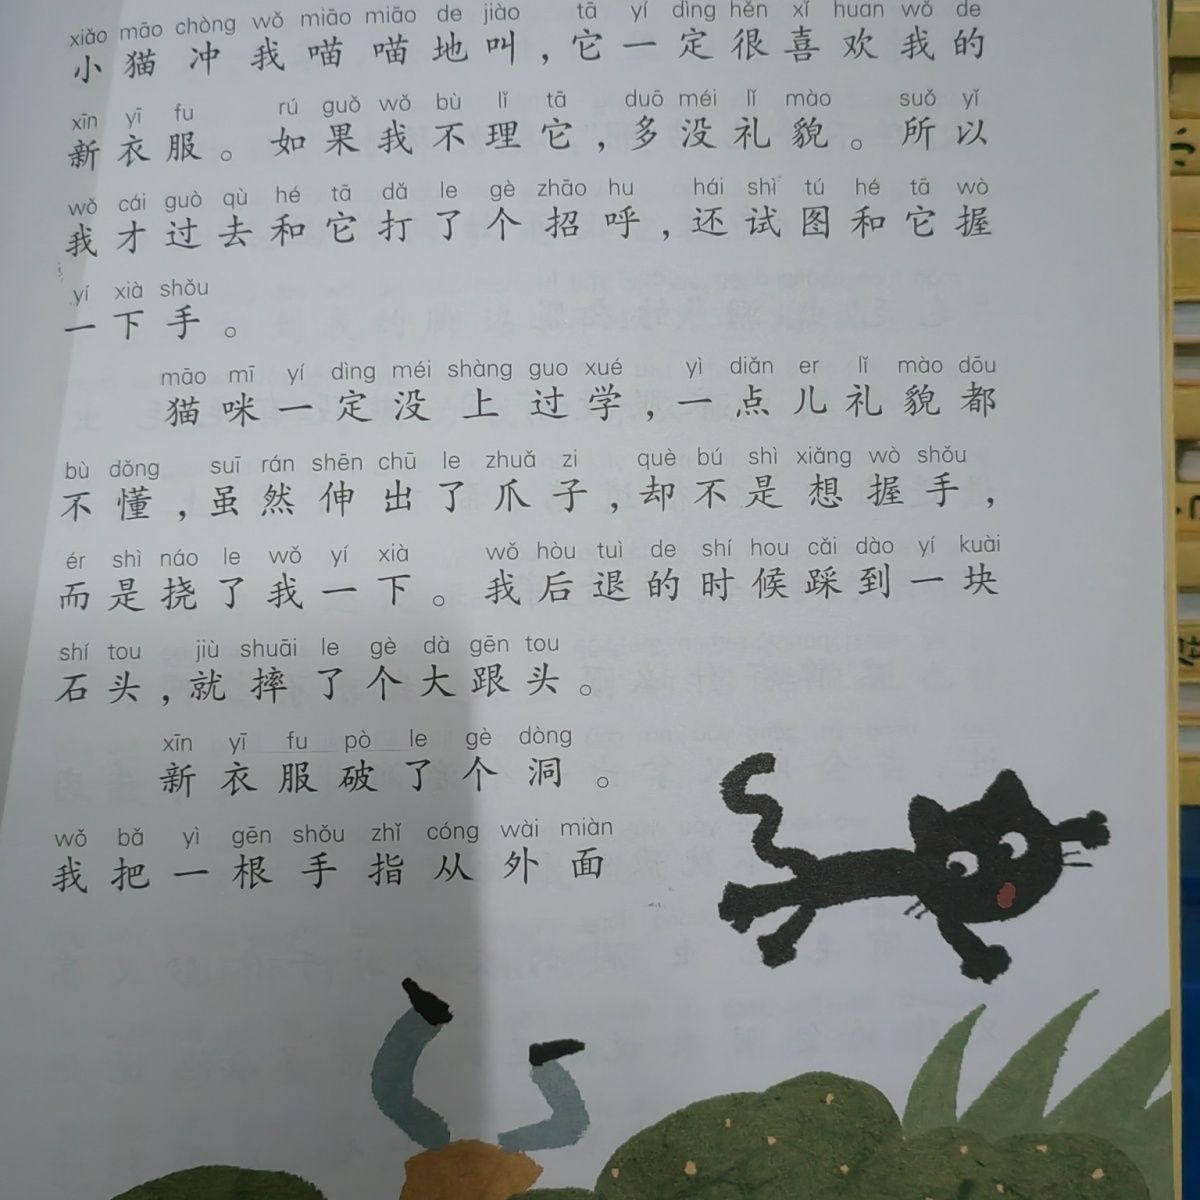 xiǎo māo chòng wǒ miāo miāo de jiào tā yí dìng hěn xǐ huan wǒ de
小猫冲我喵喵地叫,它一定很喜欢我的
xīn yī fu rú guǒ wǒ bù lǐ tā duō méi lǐ mào suǒ yǐ
新衣服。如果我不理它,多没礼貌。所以
wǒ cái guò qù hé tā dǎ le gè zhāo hu hái shì tú hé tā wò
我才过去和它打了个招呼,还试图和它握
yí xià shǒu
一下手。
māo mī yí dìng méi shàng guo xué yì diǎn er lǐ mào dōu
猫咪一定没上过学,一点儿礼貌都
bù dǒng suī rán shēn chū le zhuǎ zi què bú shì xiǎng wò shǒu
不懂,虽然伸出了爪子,却不是想握手,
ér shì náo le wǒ yí xià wǒ hòu tuì de shí hou cǎi dào yí kuài
而是挠了我一下。我后退的时候踩到一块
shí tou jiù shuāi le gè dà gēn tou
石头,就摔了个大跟头。
xīn yī fu pò le gè dòng
新衣服破了个洞。
wǒ bǎ yì gēn shǒu zhǐ cóng wài miàn
我把一根手指从外面